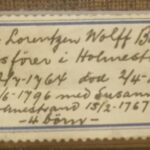 Lorentzen Wolff
sfører i Holmest
1764 død 2/4-
6-1796 med Susann
15/2-1767
-4 børn-